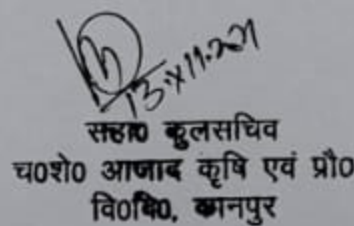 सहा० कुलसचिव
च०शे० आजाद कृषि एवं प्रौ०
वि०वि०, कानपुर